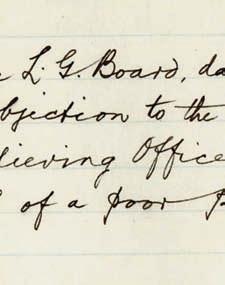 L. G. Board, da
bjection to the
lieving Office
of a poor p